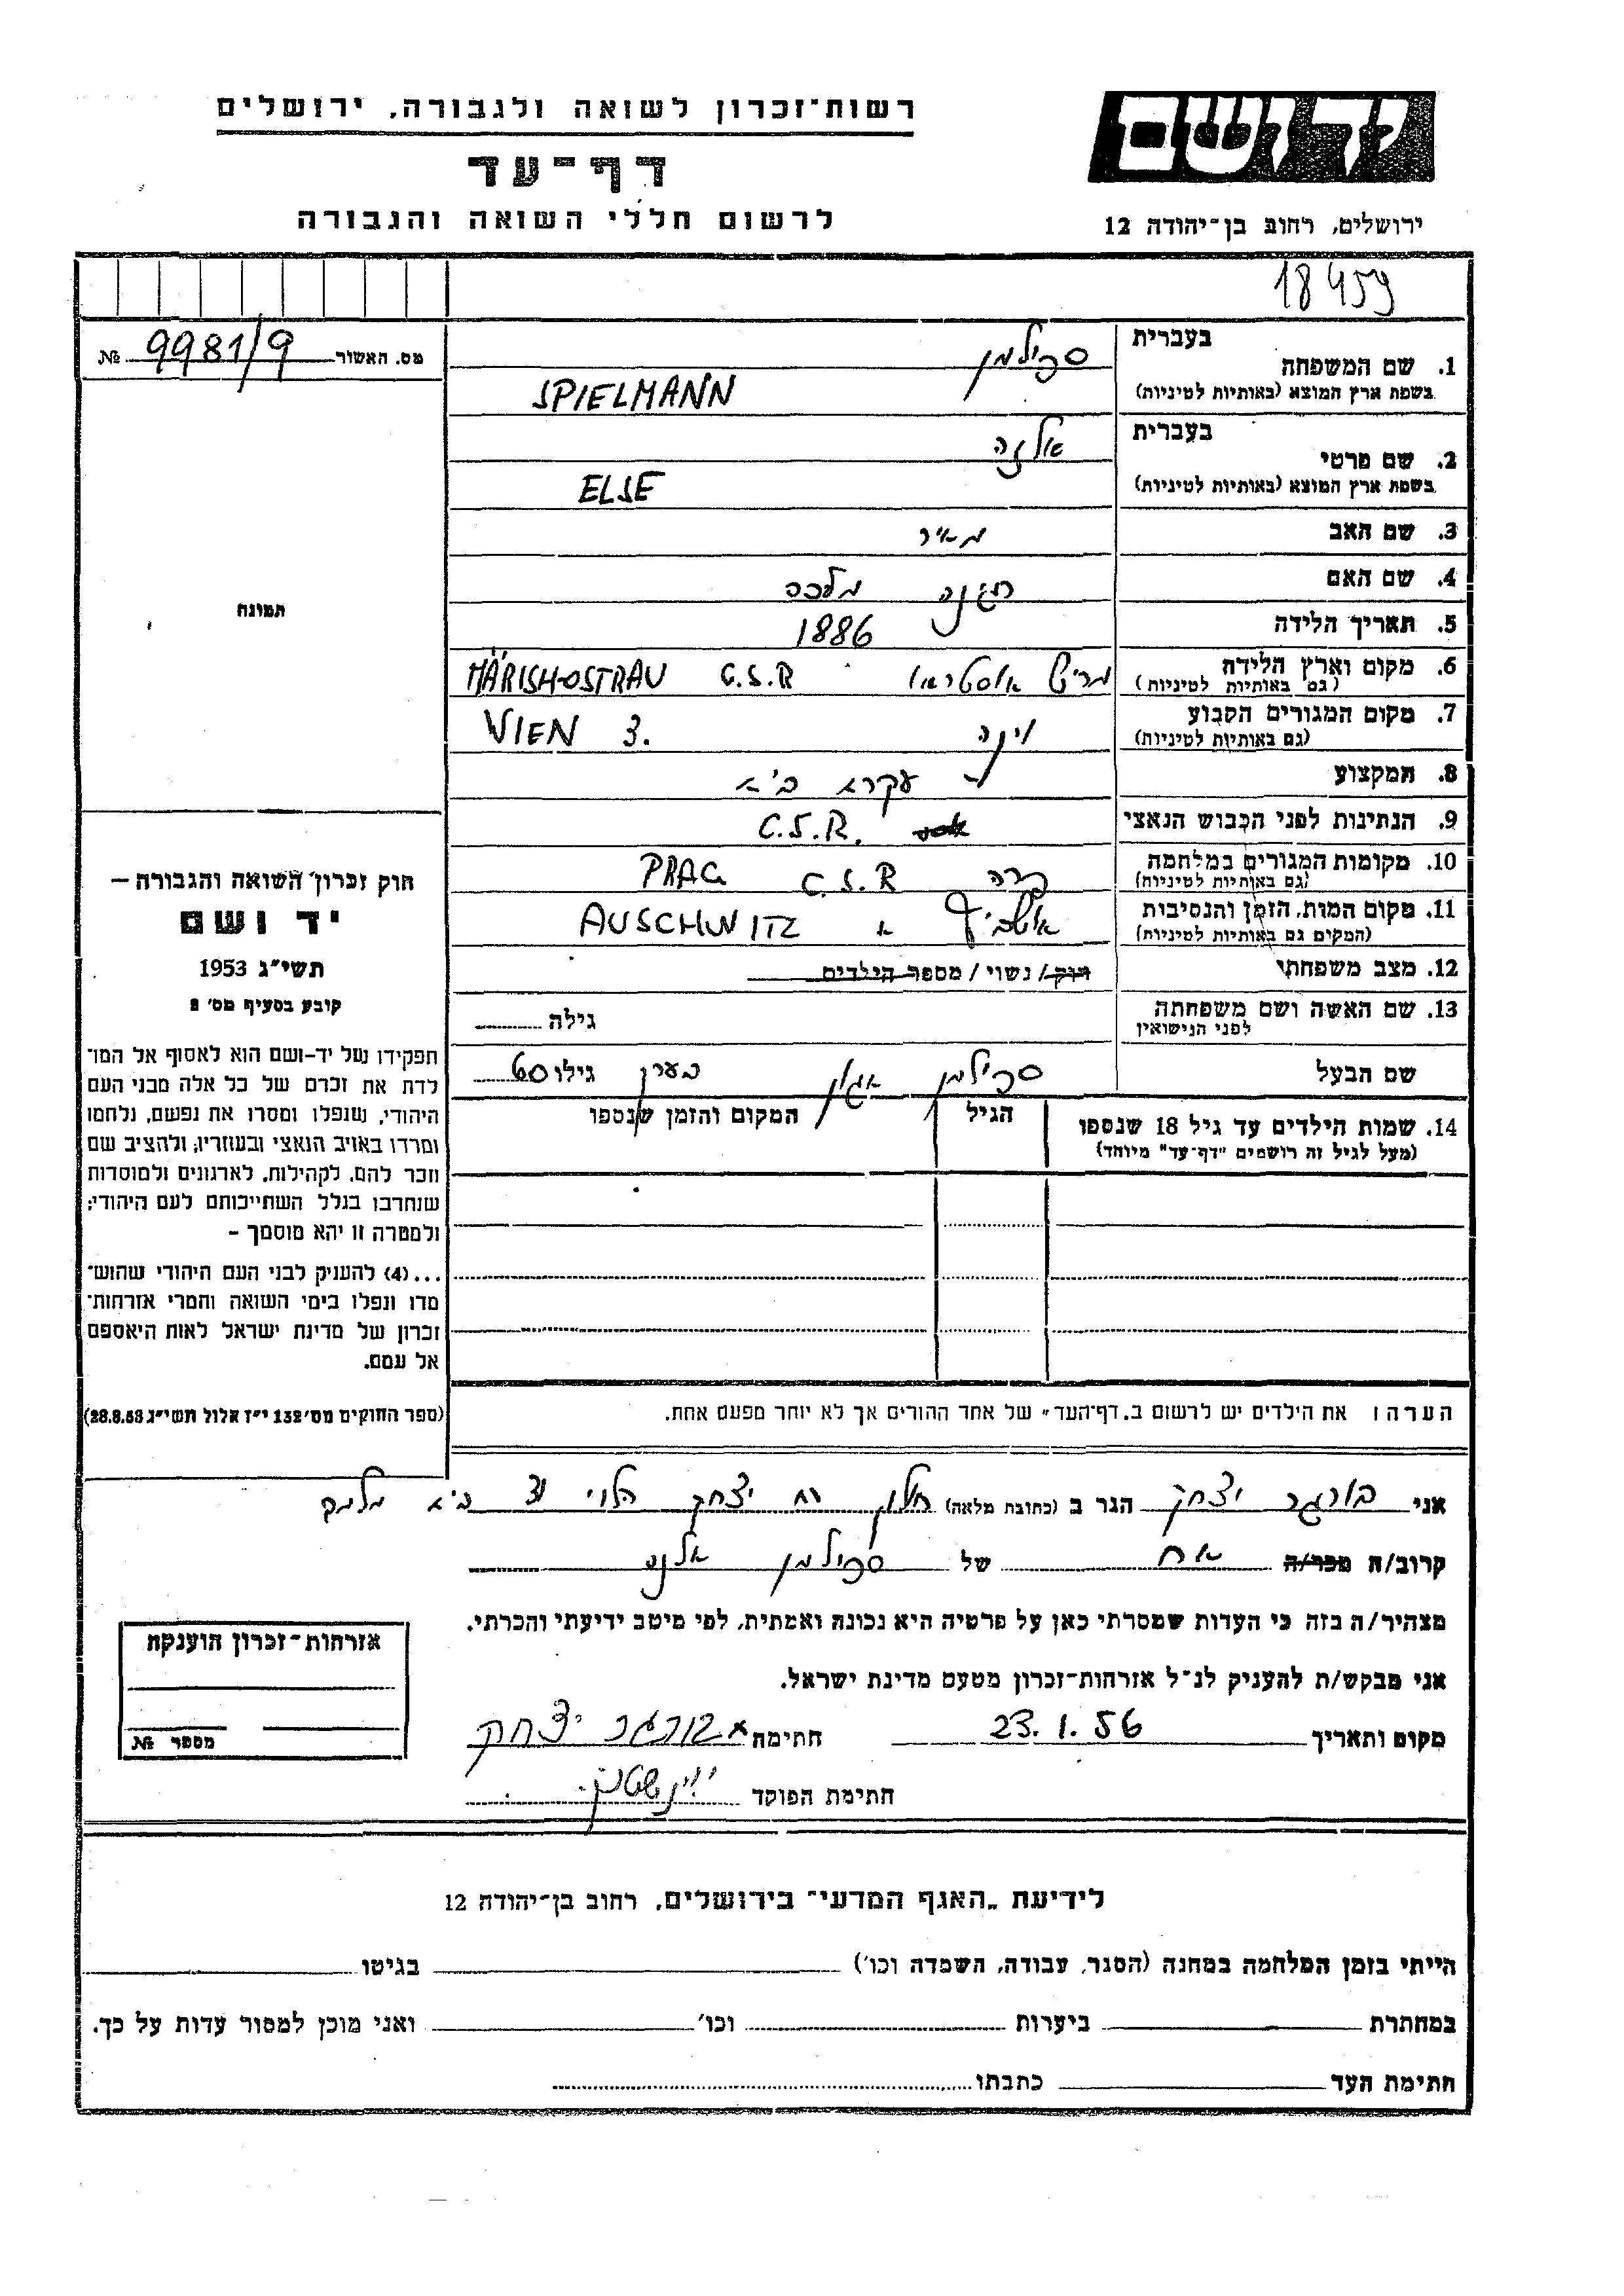 רשות־זכרון לשואה ולגבורה, ירושלים
יד ושם
דף־עד
לרשום חללי השואה והגבורה
ירושלים, רחוב בן־יהודה 12
18459
מס. האשור 9981/9 №
בעברית
1. שם המשפחה ספילמן
בשפת ארץ המוצא (באותיות לטיניות) SPIELMANN
בעברית
2. שם פרטי אלזה
בשפת ארץ המוצא (באותיות לטיניות) ELSE
3. שם האב מאיר
4. שם האם רגינה מלכה
5. תאריך הלידה 1886
6. מקום וארץ הלידה מריש אוסטראו C.S.R MÄRISH-OSTRAU
(גם באותיות לטיניות)
7. מקום המגורים הקבוע וינה VIEN 3.
(גם באותיות לטיניות)
8. המקצוע עקרא ב'א
9. הנתינות לפני הכבוש הנאצי C.S.R.
10. מקומות המגורים במלחמה פרג C.S.R PRAG
(גם באותיות לטיניות)
11. מקום המות, הזמן והנסיבות AUSCHWITZ
(המקום גם באותיות לטיניות)
12. מצב משפחתי רוק/נשוי/מספר הילדים
13. שם האשה ושם משפחתה גילה
לפני הנישואין
שם הבעל ספילמן אגון בערך גילו 60
14. שמות הילדים עד גיל 18 שנספו הגיל המקום והזמן שנספו
(מעל לגיל זה רושמים "דף־עד" מיוחד)
תמונה
חוק זכרון השואה והגבורה —
יד ושם
תשי״ג 1953
קובע בסעיף מס׳ 2
תפקידו של יד-ושם הוא לאסוף אל המו־
לדת את זכרם של כל אלה מבני העם
היהודי, שנפלו ומסרו את נפשם, נלחמו
ומרדו באויב הנאצי ובעוזריו; ולהציב שם
וזכר להם, לקהילות, לארגונים ולמוסדות
שנחרבו בגלל השתייכותם לעם היהודי;
ולמטרה זו יהא מוסמך –
...(4) להעניק לבני העם היהודי שהוש־
מדו ונפלו בימי השואה והמרי אזרחות־
זכרון של מדינת ישראל לאות היאספם
אל עמם.
(ספר החוקים מס׳ 132 י״ז אלול תשי״ג 28.8.53)
הערה: את הילדים יש לרשום ב„דף־העד״ של אחד ההורים אך לא יותר מפעם אחת.
אני בורגר יצחק הגר ב (כתובת מלאה) חולון רח יצחק הלוי
קרוב/ה מכר/ה אח של ספילמן אלזה
מצהיר/ה בזה כי העדות שמסרתי כאן על פרטיה היא נכונה ואמתית, לפי מיטב ידיעתי והכרתי.
אני מבקש/ת להעניק לנ״ל אזרחות־זכרון מטעם מדינת ישראל.
מקום ותאריך 23.1.56 חתימה בורגר יצחק
חתימת הפוקד
אזרחות־זכרון הוענקה
מספר №
לידיעת „האגף המדעי״ בירושלים, רחוב בן־יהודה 12
הייתי בזמן המלחמה במחנה (הסגר, עבודה, השמדה וכו׳) בגיטו
במחתרת ביערות וכו׳ ואני מוכן למסור עדות על כך.
חתימת העד כתבתו